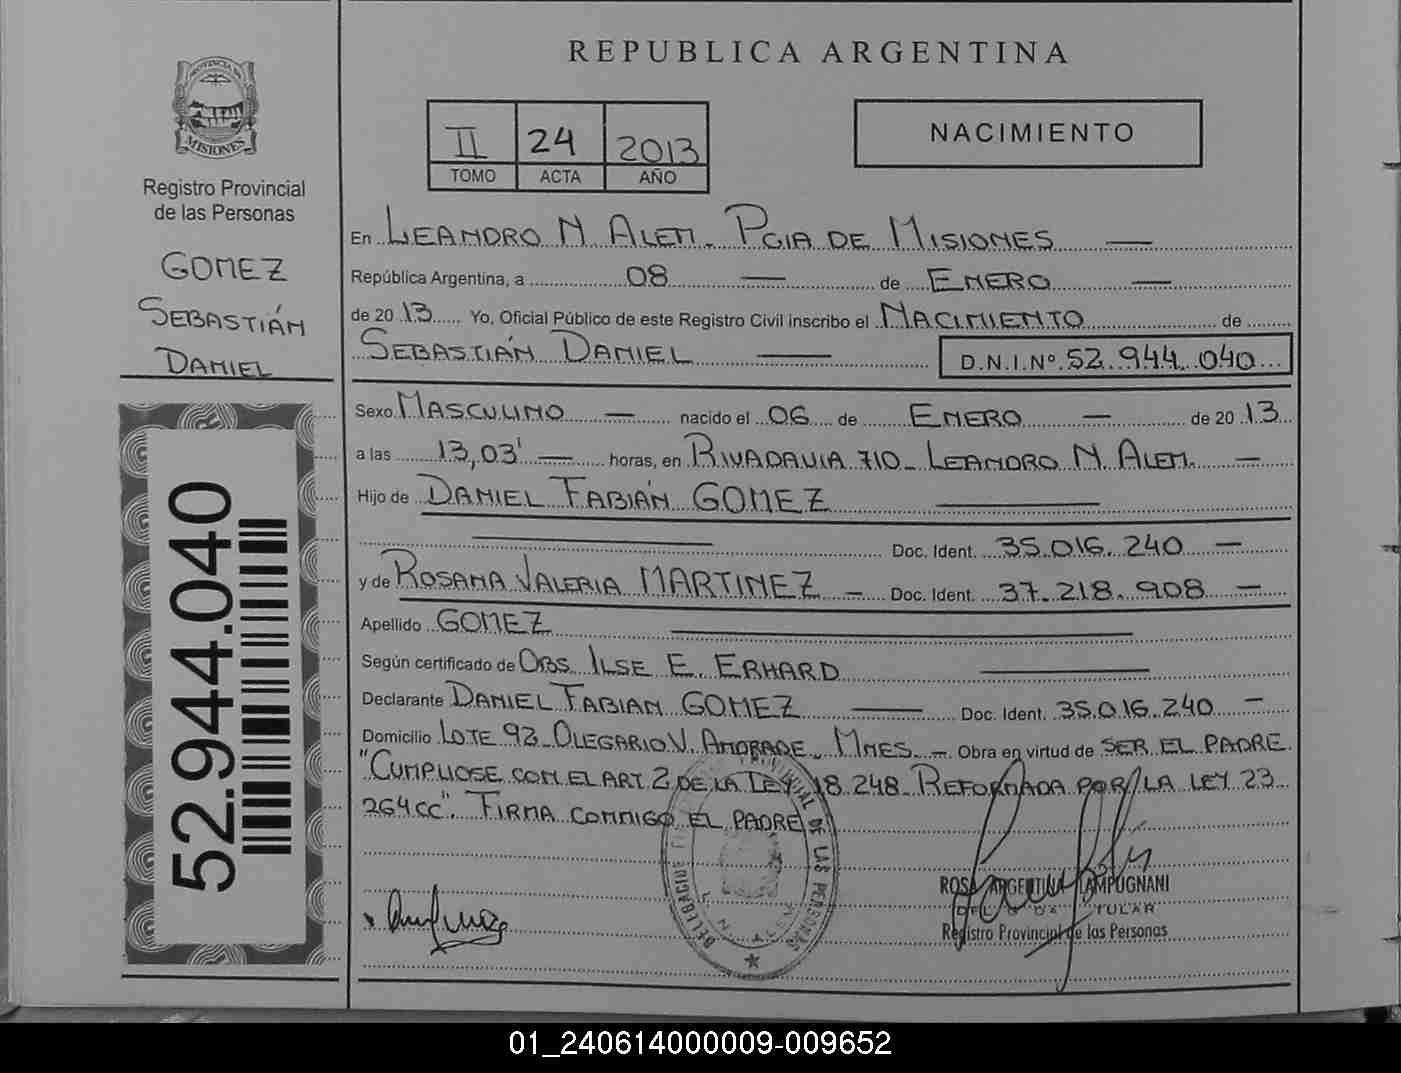 REPUBLICA ARGENTINA
PROVINCIA DE
MISIONES
Registro Provincial
de las Personas
GOMEZ
SEBASTIÁN
DANIEL
52.944.040
II 24 2013
TOMO ACTA AÑO
NACIMIENTO
En LEANDRO N. ALEM. PCIA DE MISIONES
República Argentina, a 08 de ENERO
de 2013 Yo, Oficial Público de este Registro Civil inscribo el NACIMIENTO de
SEBASTIÁN DANIEL D.N.I.Nº 52.944.040
Sexo MASCULINO nacido el 06 de ENERO de 2013
a las 13,03' horas, en RIVADAVIA 710_ LEANDRO N. ALEM.
Hijo de DANIEL FABIÁN GOMEZ
Doc. Ident. 35.016.240
y de ROSANA VALERIA MARTINEZ Doc. Ident. 37.218.908
Apellido GOMEZ
Según certificado de OBS. ILSE E. ERHARD
Declarante DANIEL FABIAN GOMEZ Doc. Ident. 35.016.240
Domicilio LOTE 92_ OLEGARIO V. ANDRADE_ MNES. Obra en virtud de SER EL PADRE.
"CUMPLIOSE CON EL ART 2 DE LA LEY 18.248_ REFORMADA POR LA LEY 23.
264 CC". FIRMA CONMIGO EL PADRE
DE LAS PERSONAS
ROSA ARGENTINA LAMPUGNANI
Registro Provincial de las Personas
01_240614000009-009652